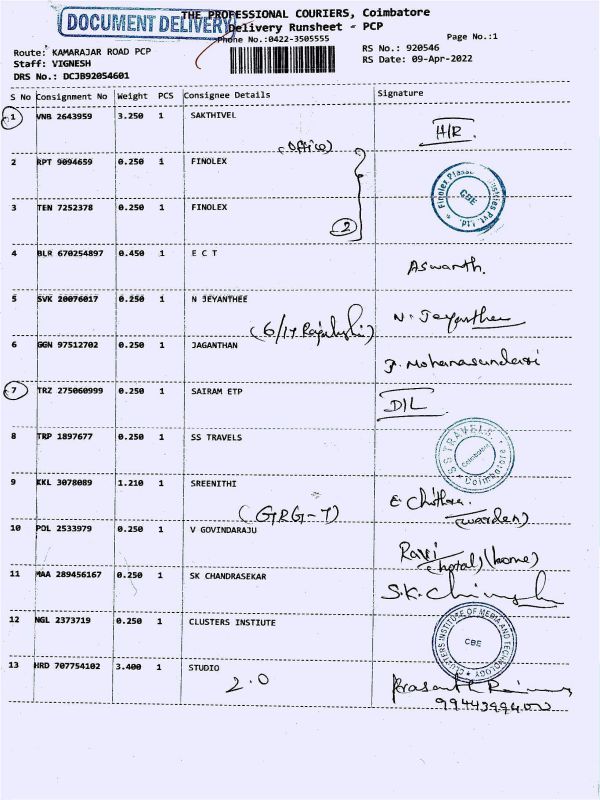 THE PROFESSIONAL COURIERS, Coimbatore
DOCUMENT DELIVERY
Delivery Runsheet - PCP
Phone No.:0422-3505555
Page No.:1
Route: KAMARAJAR ROAD PCP
RS No.: 920546
Staff: VIGNESH
RS Date: 09-Apr-2022
DRS No.: DCJB92054601
S No Consignment No Weight PCS Consignee Details Signature
1 VNB 2643959 3.250 1 SAKTHIVEL H/R
(Office)
2 RPT 9094659 0.250 1 FINOLEX
CBE
3 TEN 7252378 0.250 1 FINOLEX
2
4 BLR 670254897 0.450 1 E C T Aswanth.
5 SVK 20076017 0.250 1 N JEYANTHEE N. Jeyanthee
6 GGN 97512702 0.250 1 JAGANTHAN P. Mohanasundari
7 TRZ 275060999 0.250 1 SAIRAM ETP D/L
8 TRP 1897677 0.250 1 SS TRAVELS
S S TRAVELS Coimbatore
9 KKL 3078089 1.210 1 SREENITHI E. Chithra
(GRG-7) (warden)
10 POL 2533979 0.250 1 V GOVINDARAJU Ravi (home)
11 MAA 289456167 0.250 1 SK CHANDRASEKAR S.K.
12 NGL 2373719 0.250 1 CLUSTERS INSTIUTE
CLUSTERS INSTITUTE OF MEDIA AND TECHNOLOGY CBE
13 HRD 707754102 3.400 1 STUDIO
2.0 Prasanth